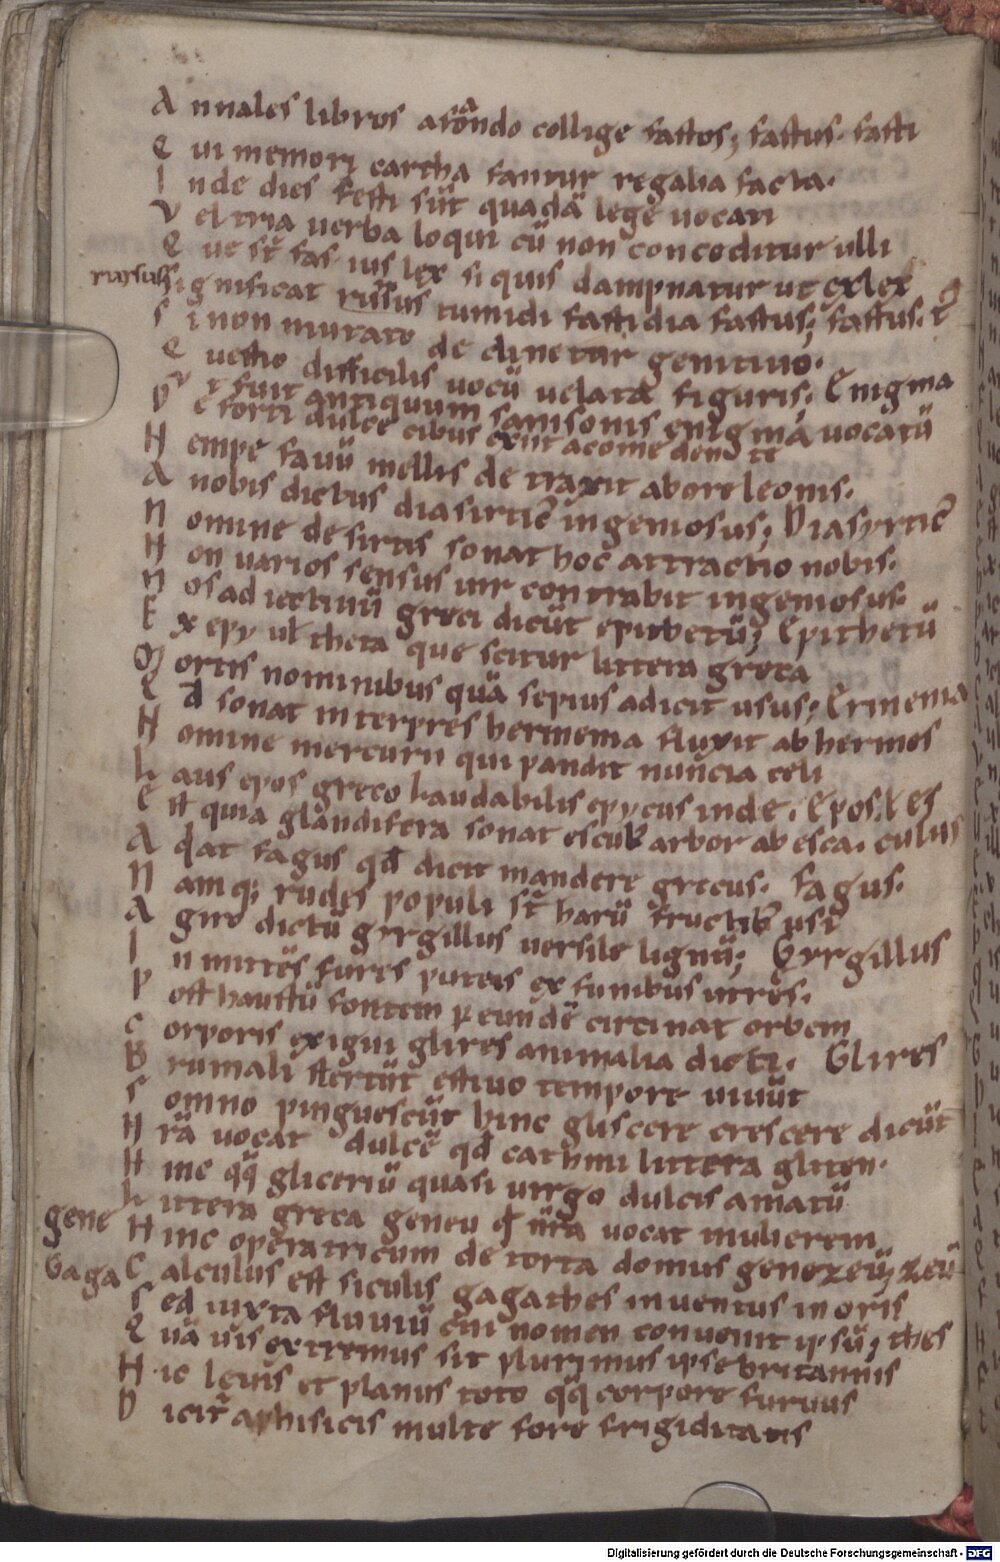 A nnales libros a fando collige fastos; fastus. fasti
C ui memori cartha fantur regalia facta.
I nde dies festi sūt quadā lege uocati
V el tria uerba loqui cū non conceditur ulli
Q ue st̄ fas ius lex si quis dampnatur ut exlex
rursus S ignificat rursus tumidi fastidia fastus; fastus. t̄
S i non mutato de clinetur genitiuo.
Q uestio difficilis uocū uelata figuris; Enigma
V t fuit antiquum samsonis enigma uocatū
D e forti dulce cibus exiit a comedente
N empe fauū mellis detraxit ab ore leonis.
A nobis dictus diasirtic̄ ingeniosus; Diasyrtic̄
N omine de sirtis sonat hoc attractio nobis.
N on uarios sensus uir contrahit ingeniosus.
N os adiectiuū greci dicūt epithetū; Epithetū
E x epy ul theta que scitur littera greca
M ortis nominibus quā sepius adicit usus; Ermenia
Q d sonat interpres hermenia fluxit ab hermes
N omine mercurii qui pandit nuncia celi
L aus epos greco laudabilis epycus inde. Epos. Es
E st quia glandifera sonat esculꝰ arbor ab esca. culus
A dat fagus qd̄ dicit mandere grecus. fagus.
N amq; rudes populi st̄ harū fructibꝰ usi
A giro dictū gyrgillus uersile lignū; Gyrgillus
I n mittēs fures puteis ex funibus utrēs.
P ost haustū fontem p eundē circinat orbem
C orporis exigui glires animalia dicti. Glires
B rumali stertūt estiuo tempore uiuūt
S omno pinguescūt hinc gliscere crescere dicūt
N rā uocat dulcē qd̄ cathmi littera gliten.
N inc qq̄ gliceriū quasi uirgo dulcis amatū
L ittera greca geneu q̄ n̄ra uocat mulierem
gene H inc operatricum de torta domus genezeū; zeū
Gaga C alculus est siculis gagathes inuentus in oris
S ed iuxta fluuiū cui nomen conuenit ipsū; thes
Q uā uis extremus sit plurimus ipse britannis
H ic leuis et planus toto qq̄ corpore furuus
D icit̄ a phisicis multe fore frigiditatis
Digitalisierung gefördert durch die Deutsche Forschungsgemeinschaft - DFG